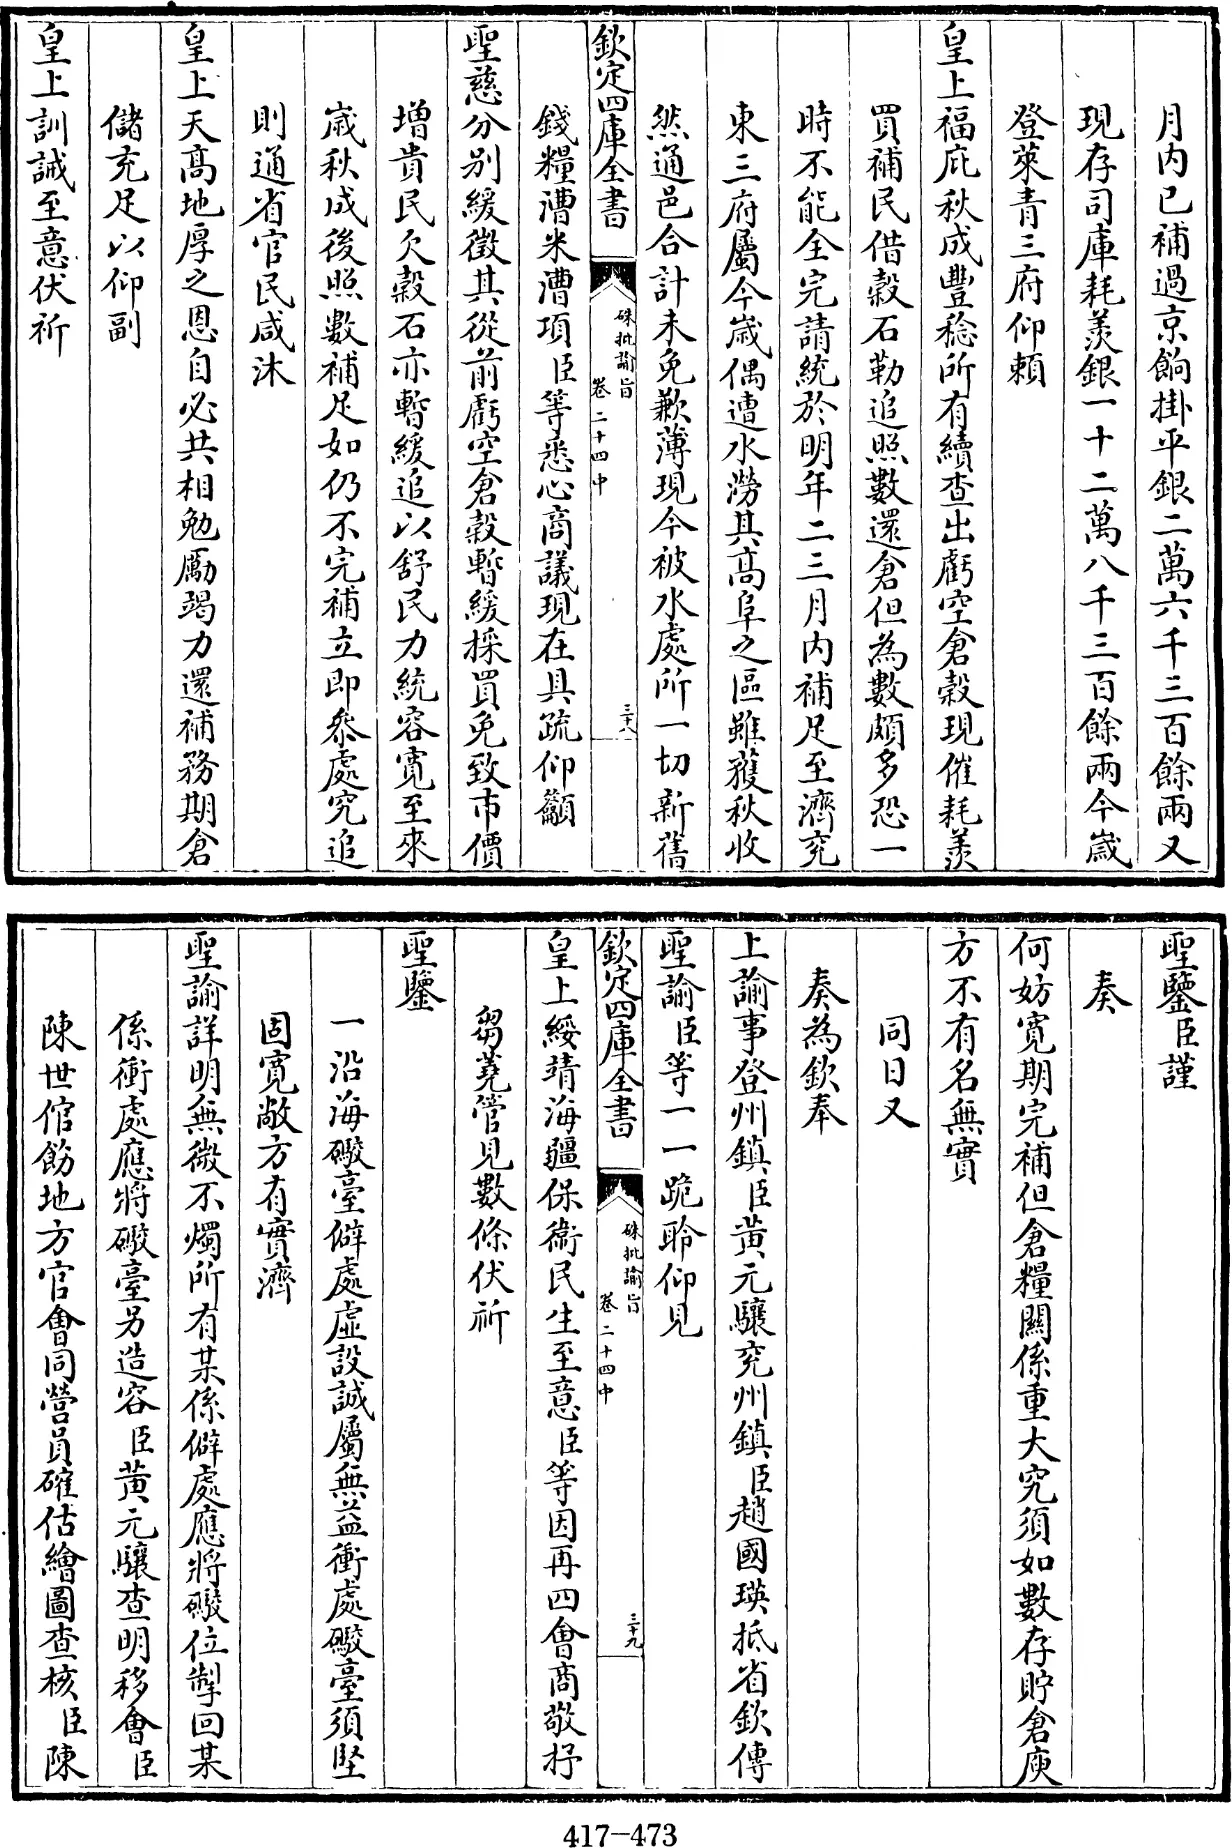 月内已補過京餉掛平銀二萬六千三百餘兩又
現存司庫耗羨銀一十二萬八千三百餘兩今歲
登萊青三府仰頼
皇上福庇秋成豐稔所有續查出虧空倉穀現催耗羨
買補民借穀石勒追照數還倉但為數頗多恐一
時不能全完請統於明年二三月内補足至濟兖
東三府屬今歲偶遭水澇其髙阜之區雖獲秋收
然通邑合計未免歉薄現今被水處所一切新舊
欽定四庫全書
硃批諭旨
卷二十四中
三十八
錢糧漕米漕項臣等悉心商議現在具疏仰籲
聖慈分别緩徵其從前虧空倉穀暫緩採買免致市價
增貴民欠穀石亦暫緩追以舒民力統容寛至來
歲秋成後照數補足如仍不完補立即叅處究追
則通省官民咸沐
皇上天髙地厚之恩自必共相勉勵竭力還補務期倉
儲充足以仰副
皇上訓誡至意伏祈
聖鑒臣謹
奏
何妨寛期完補但倉糧關係重大究須如數存貯倉庾
方不有名無實
同日又
奏為欽奉
上諭事登州鎮臣黄元驤兖州鎮臣趙國瑛抵省欽傳
聖諭臣等一一跪聆仰見
欽定四庫全書
硃批諭旨
卷二十四中
三十九
皇上綏靖海疆保衞民生至意臣等因再四會商敬抒
芻蕘管見數條伏祈
聖鑒
一沿海礮臺僻處虚設誠屬無益衝處礮臺須堅
固寛敞方有實濟
聖諭詳明無微不燭所有某係僻處應將礮位掣回某
係衝處應將礮臺另造容臣黄元驤查明移會臣
陳世倌飭地方官會同營員確估繪圖查核臣陳
417-473